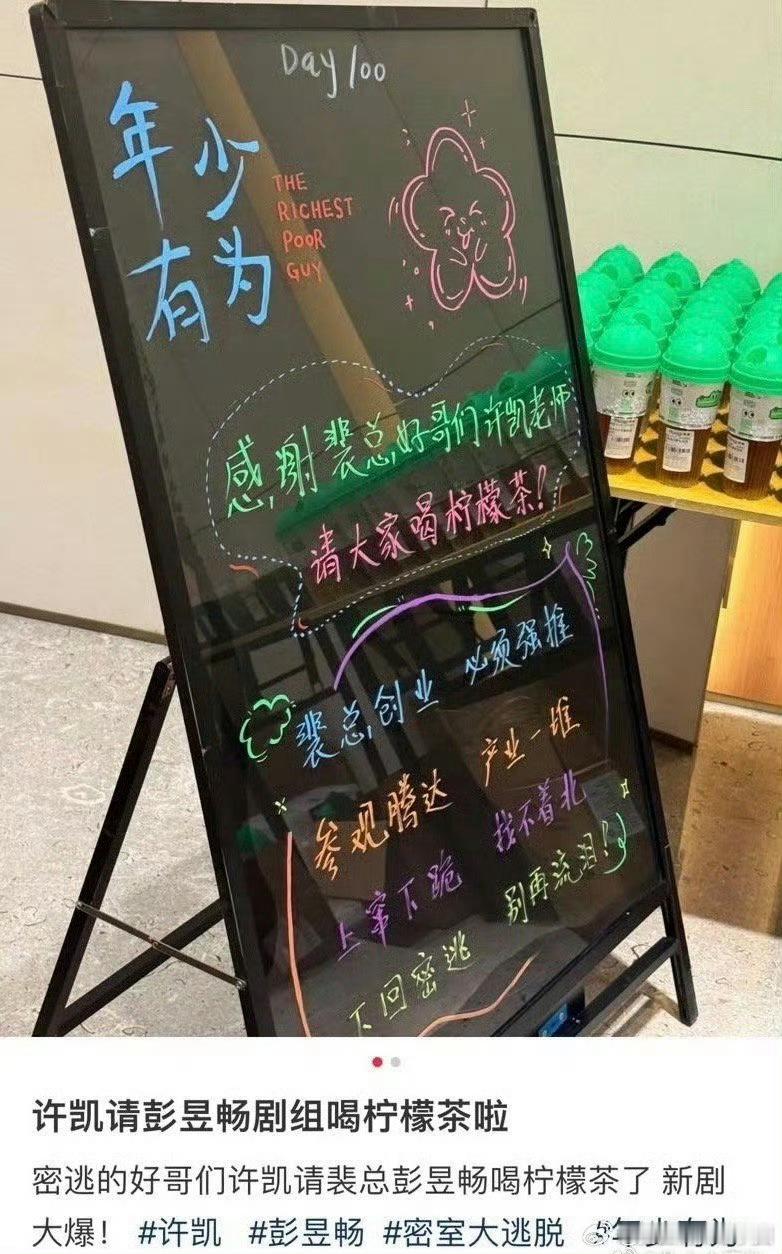 Day 100
年少
有为
THE
RICHEST
POOR
GUY
感谢裴总好哥们许凯老师
请大家喝柠檬茶！
裴总创业 必须强推
参观腾达 产业一堆
上窜下跪 找不着北
下回密逃 别再流泪！
许凯请彭昱畅剧组喝柠檬茶啦
密逃的好哥们许凯请裴总彭昱畅喝柠檬茶了 新剧
大爆！ #许凯 #彭昱畅 #密室大逃脱